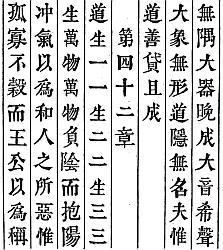 無隅大器晚成大音希聲
大象無形道隱無名夫惟
道善貸且成
第四十二章
道生一一生二二生三三
生萬物萬物負陰而抱陽
冲氣以爲和人之所惡惟
孤寡不穀而王公以爲稱